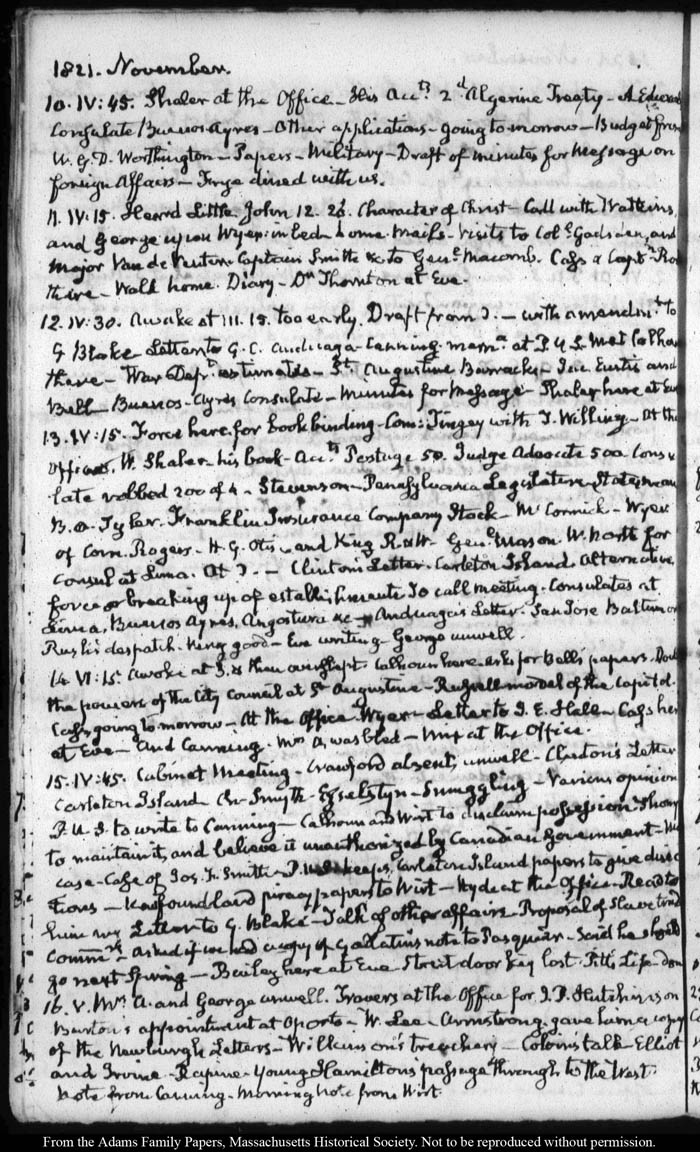 1821. November.
10. IV:45. Shaler at the Office - His Accts 2d Algerine Treaty - A
Consulate Buenos Ayres - Other applications - going to morrow - Budget from
W. G. D. Worthington - Papers - Military - Draft of minutes for Message on
foreign Affairs - Frye dined with us.
11. IV:15. Heard Little. John 12. 26. Character of Christ - Call with Watkins,
and George upon Wyer in bed home. Mails - Visits to Colo. Gadsden, and
Major Van de Venter. Captain Smith &c to Genl. Macomb. Cass & Captn.
there - Walk home. Diary - Dr. Thornton at Eve.
12. IV:30. Awake at III.15. too early. Draft from J. - with amendmt. to
G Blake - Letter to G. C. Anduaga - Canning. at P.U.S. Met Calhoun
there - War Dept. estimates - St. Augustine Barracks - Eustis and
Bell - Buenos-Ayres Consulate - Minutes for Message - Shaler here at Eve
13. IV:15. Force here for book binding - Com: Tingey with T. Willing - At the
Office. W. Shaler - his book - Accts. Postage 50. Judge Advocate 500. Consu
late robbed 200 of 4 - Stevenson - Pennsylvania Legislature Statesman
B. O. Tyler. Franklin Insurance Company Stock - McCormick - Wyer
of Com. Rogers - H. G. Otis and King R. - Genl. Mason. W. North for
Consul at Lima. At J. - Clinton's Letter. Carleton Island. Alternative,
force or breaking up of establishment. To call meeting. Consulates at
Lima, Buenos Ayres, Angostura &c - Anduaga's Letter. San Jose Baltimore
Rush's despatch. King good - Eve writing - George unwell.
14. VI:15. Awoke at 3. & then overslept. Calhoun here. asks for Bell's papers. Doubt
the powers of the City Council at St. Augustine - Russell model of the Capitol.
Cass going to morrow - At the Office Wyer - Letter to J. E. Hall - Cass here
at Eve - And Canning. Mrs. A. was bled - at the Office.
15. IV:45. Cabinet Meeting - Crawford absent, unwell - Clinton's Letter
Carleton Island - Smyth - Esselstyn - Smuggling - Various opinion
P.U.S. to write to Canning - Calhoun and Wirt to disclaim possession. Thomp
to maintain it, and believe it unauthorized by Canadian Government -
case - Case of Jos. F. Smith - P.U.S. keeps Carleton Island papers to give direc
tions - Newfoundland piracy papers to Wirt - Hyde at the Office - Read to
him my Letter to G. Blake - Talk of other affairs. Proposal of Slave trade
Commn. Asked if we had a copy of Gallatin's note to Pasquier - Said he should
go next Spring - Bailey here at Eve. Street door key lost. Pitt's Life done
16. V. Mrs. A. and George unwell. Travers at the Office for J. P. Hutchinson
Burton's appointment at Oporto - W. Lee - Armstrong gave him a copy
of the Newburgh Letters - Wilkinson's treachery - Colonis talk - Elliot
and Irvine - Rapine - Young Hamilton's passage through to the West.
Note from Canning - Morning note from Wirt.
From the Adams Family Papers, Massachusetts Historical Society. Not to be reproduced without permission.